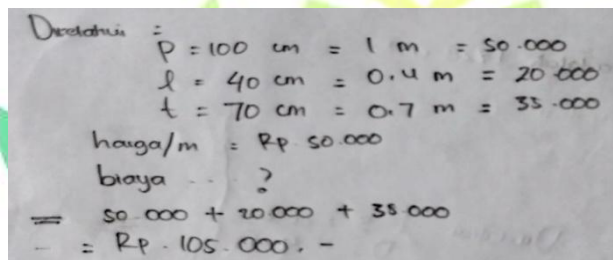 Diketahui :
P = 100 cm = 1 m = 50.000
l = 40 cm = 0.4 m = 20.000
t = 70 cm = 0.7 m = 35.000
harga/m = Rp 50.000
biaya ... ?
= 50.000 + 20.000 + 35.000
= Rp. 105.000.-